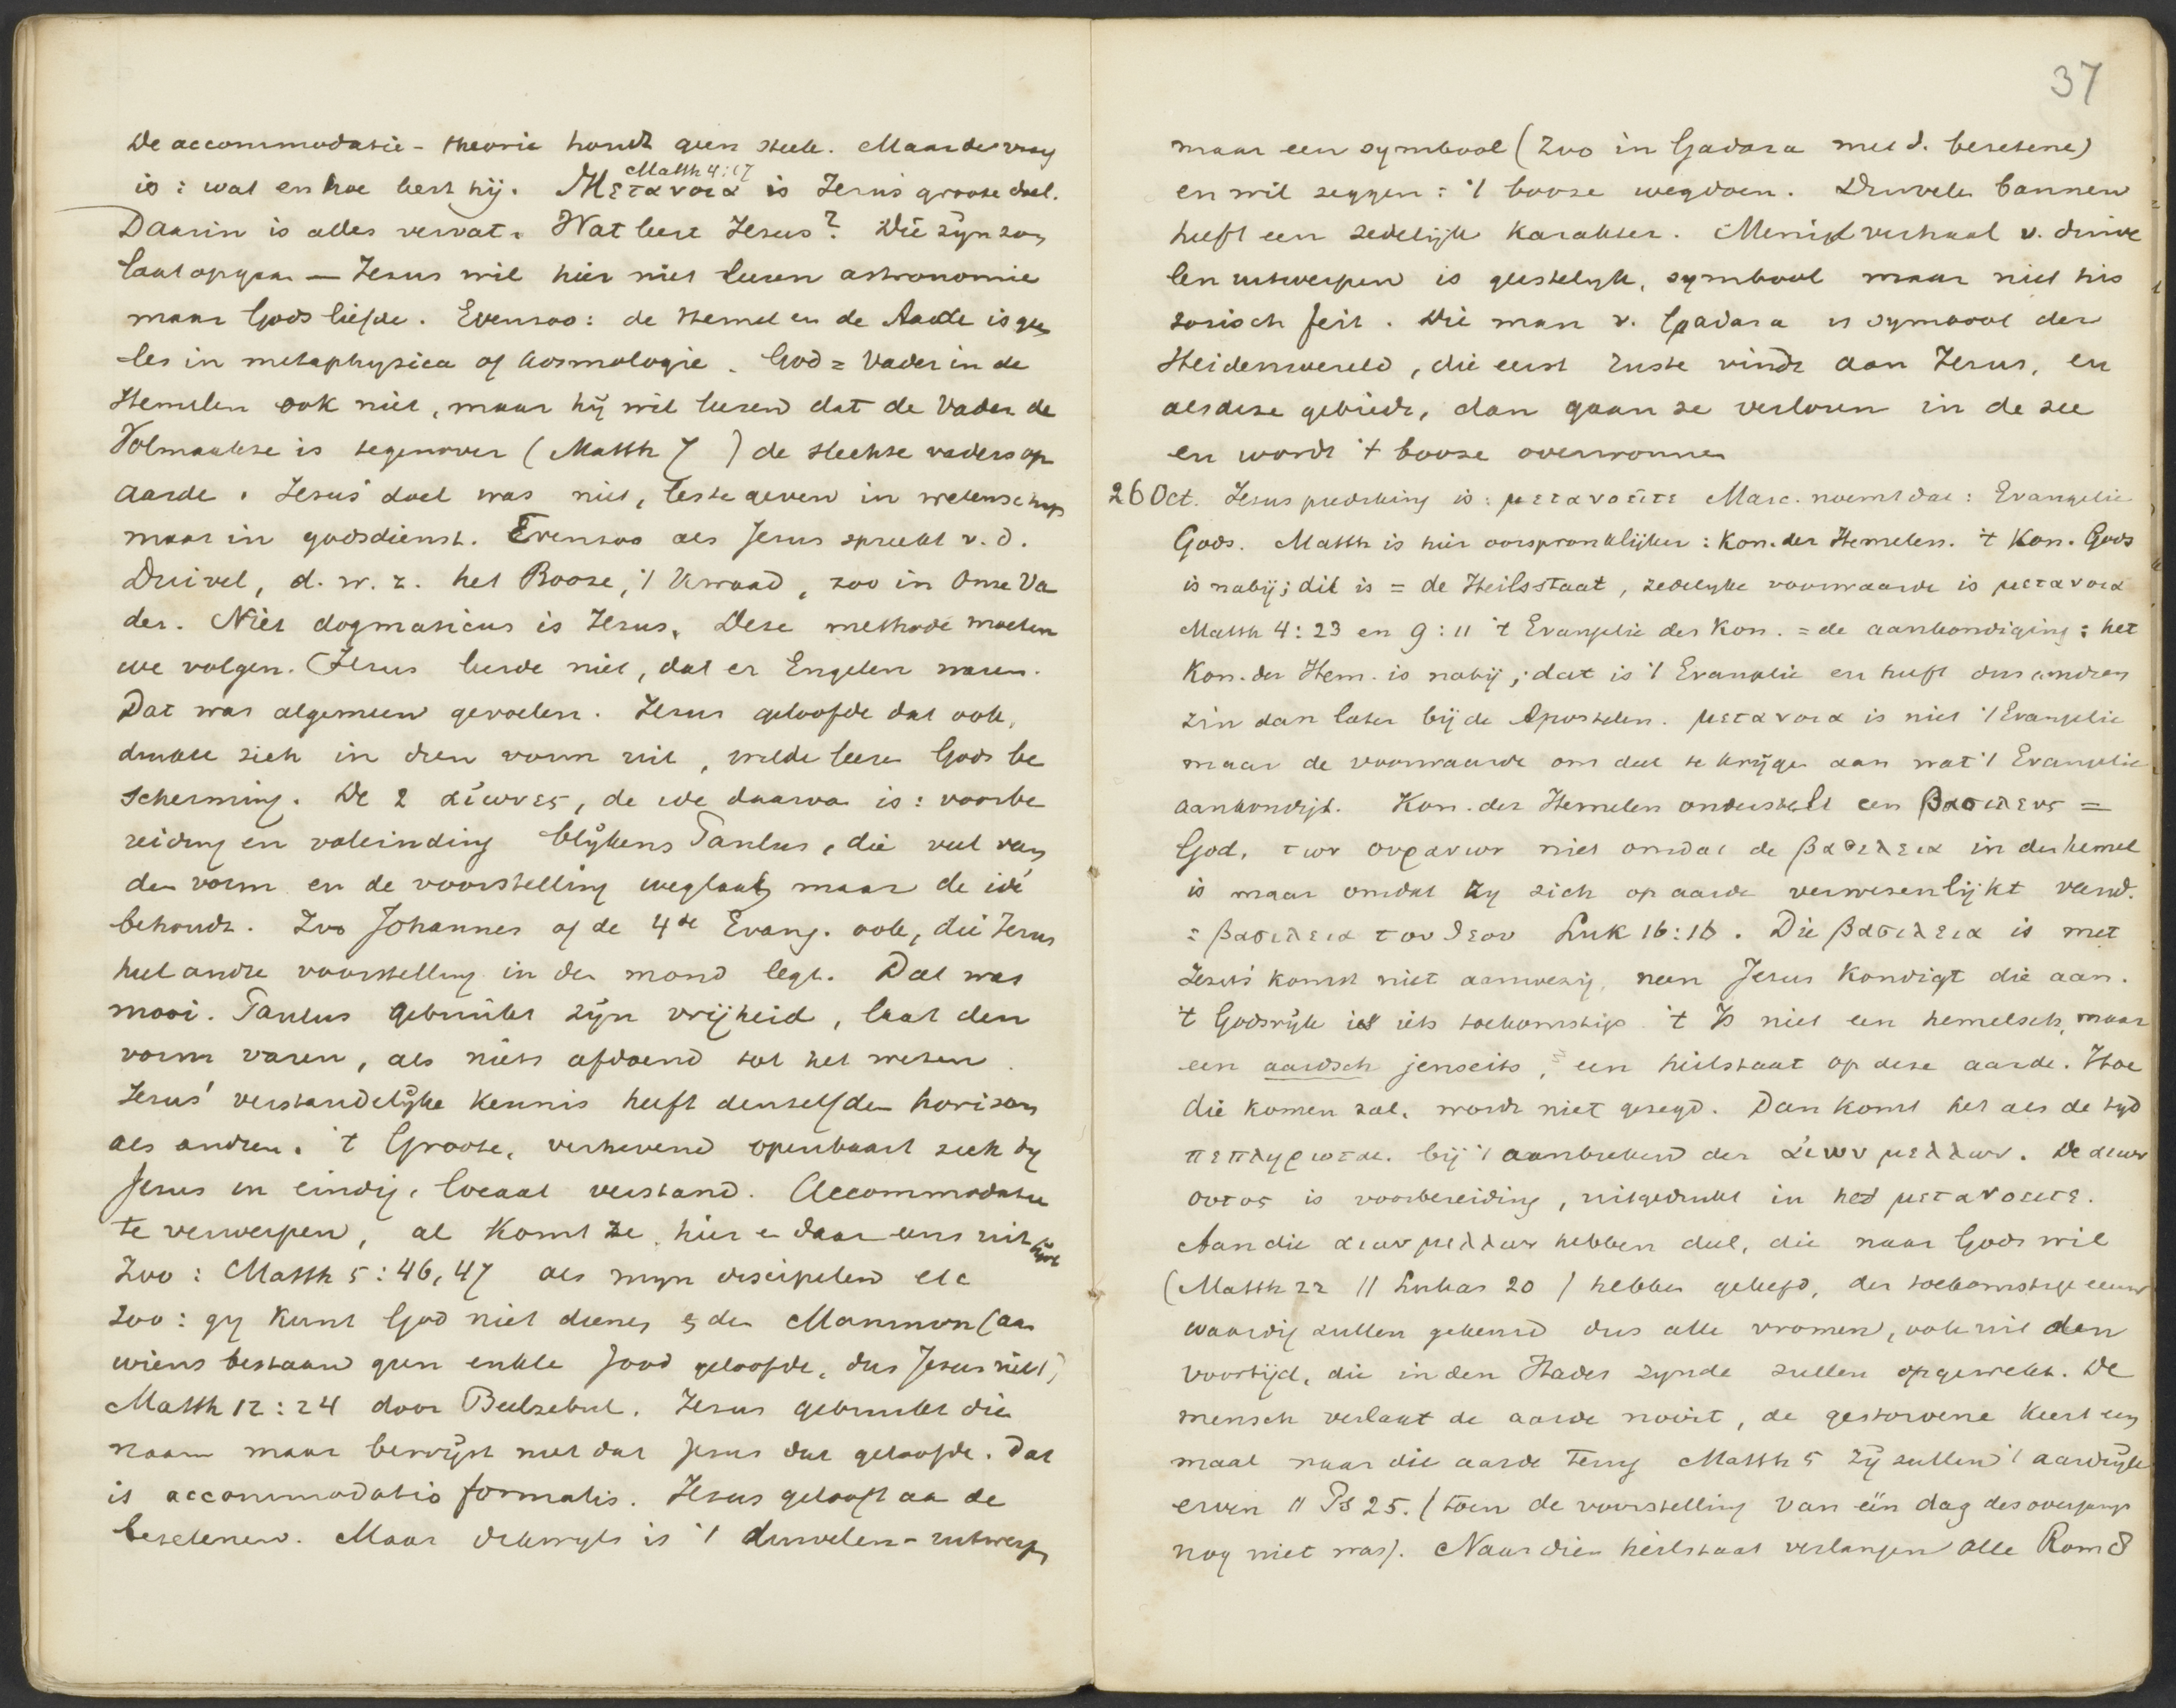 De accommodatie-theorie houdt geen steek. Maar de vraag
Matth 4:17
is: wat en hoe leert hij. Μετανοια is Jezus groote doel.
Daarin is alles vervat. Wat leert Jezus? Die zijn zon
laat opgaan — Jezus wil hier niet leeren astronomie
maar Gods liefde. Evenzoo: de Hemel en de Aarde is geen
les in metaphysica of kosmologie. God = Vader in de
Hemelen ook niet, maar hij wil leeren dat de Vader de
Volmaakte is tegenover (Matth 7 ) de slechte vaders op
aarde. Jezus' doel was niet, les te geven in wetenschap
maar in godsdienst. Evenzoo als Jezus spreekt v. d.
Duivel, d. w. z. het Booze, 't Kwaad, zoo in Onze Va
der. Niet dogmaticus is Jezus. Deze methode moeten
we volgen. Jezus leerde niet, dat er Engelen waren.
Dat was algemeen gevoelen. Jezus geloofde dat ook,
drukte zich in dien vorm uit, wilde leeren Gods be
scherming. De 2 αἰωνες, de idee daarva is: voorbe
reiding en voleinding blijkens Paulus, die veel van
den vorm en de voorstelling weglaat, maar de idé
behoudt. Zoo Johannes of de 4de Evang. ook, die Jezus
heel andre voorstelling in den mond legt. Dat was
mooi. Paulus gebruikt zijn vrijheid, laat den
vorm varen, als niets afdoend tot het wezen.
Jezus' verstandelijke kennis heeft denzelfden horizon
als andren. 't Groote, verhevene openbaart zich bij
Jezus in eindig, locaal verstand. Accommodatie
te verwerpen, al komt ze hier en daar eens uit
Zoo: Matth 5:46,47 als mijn discipelen etc
Zoo: gij kunt God niet dienen en den Mammon (aan
wiens bestaan geen enkle Jood geloofde, dus Jezus niet)
Matth 12:24 door Beelzebul. Jezus gebruikt die
naam maar bewijst niet dat Jezus dat geloofde. Dat
is accommodatio formalis. Jezus gelooft aan de
bezetenen. Maar dikwijls is 't duivelen-uitwerpen
37
maar een symbool (zoo in Gadara met d. bezetene)
en wil zeggen: 't booze wegdoen. Duivelen bannen
heeft een zedelijk karakter. Menig verhaal v. duive
len uitwerpen is geestelijk, symbool maar niet his
torisch feit. Die man v. Gadara is symbool der
Heidenwereld, die eerst ruste vindt aan Jezus, en
als deze gebiedt, dan gaan ze verloren in de zee
en wordt 't booze overwonnen
26 Oct. Jezus prediking is: μετανοεῖτε Marc. noemt dat: Evangelie
Gods. Matth is hier oorspronklijker: Kon. der Hemelen. 't Kon. Gods
is nabij; dit is = de Heilsstaat, zedelijke voorwaarde is μετανοια
Matth 4:23 en 9:11 't Evangelie des Kon. = de aankondiging: het
Kon. der Hem. is nabij; dat is 't Evangelie en heeft dus andren
zin dan later bij de Apostelen. μετανοια is niet 't Evangelie
maar de voorwaarde om deel te krijgen aan wat 't Evangelie
aankondigt. Kon. der Hemelen onderstelt een βασιλευς =
God, των ουρανων niet omdat de βασιλεια in den hemel
is maar omdat zij zich op aarde verwezenlijkt vand.
= βασιλεια του θεου Luk 16:16. Die βασιλεια is met
Jezus' komst niet aanwezig, neen Jezus kondigt die aan.
't Godsrijk is iets toekomstigs. 't Is niet een hemelsch, maar
een aardsch jenseits, een heilstaat op deze aarde. Hoe
die komen zal, wordt niet gezegd. Dan komt het als de tijd
πεπληρωται. bij 't aanbreken der αἰων μελλων. De αιων
ουτος is voorbereiding, uitgedrukt in het μετανοειτε.
Aan die αιων μελλων hebben deel, die naar Gods wil
(Matth 22 // Lukas 20 ) hebben geleefd, der toekomstige eeuw
waardig zullen gekeurd dus alle vromen, ook uit den
voortijd, die in den Hades zijnde zullen opgewekt. De
mensch verlaat de aarde nooit, de gestorvene keert een
maal naar die aarde terug Matth 5 zij zullen 't aardrijk
erven // Ps 25. (toen de voorstelling van één dag des overgangs
nog niet was). Naar dien heilstaat verlangen alle Rom 8